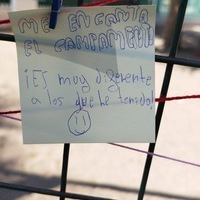 ME ENCANTA
EL CAMPAMENTO
¡Es muy diferente
a los que he tenido!